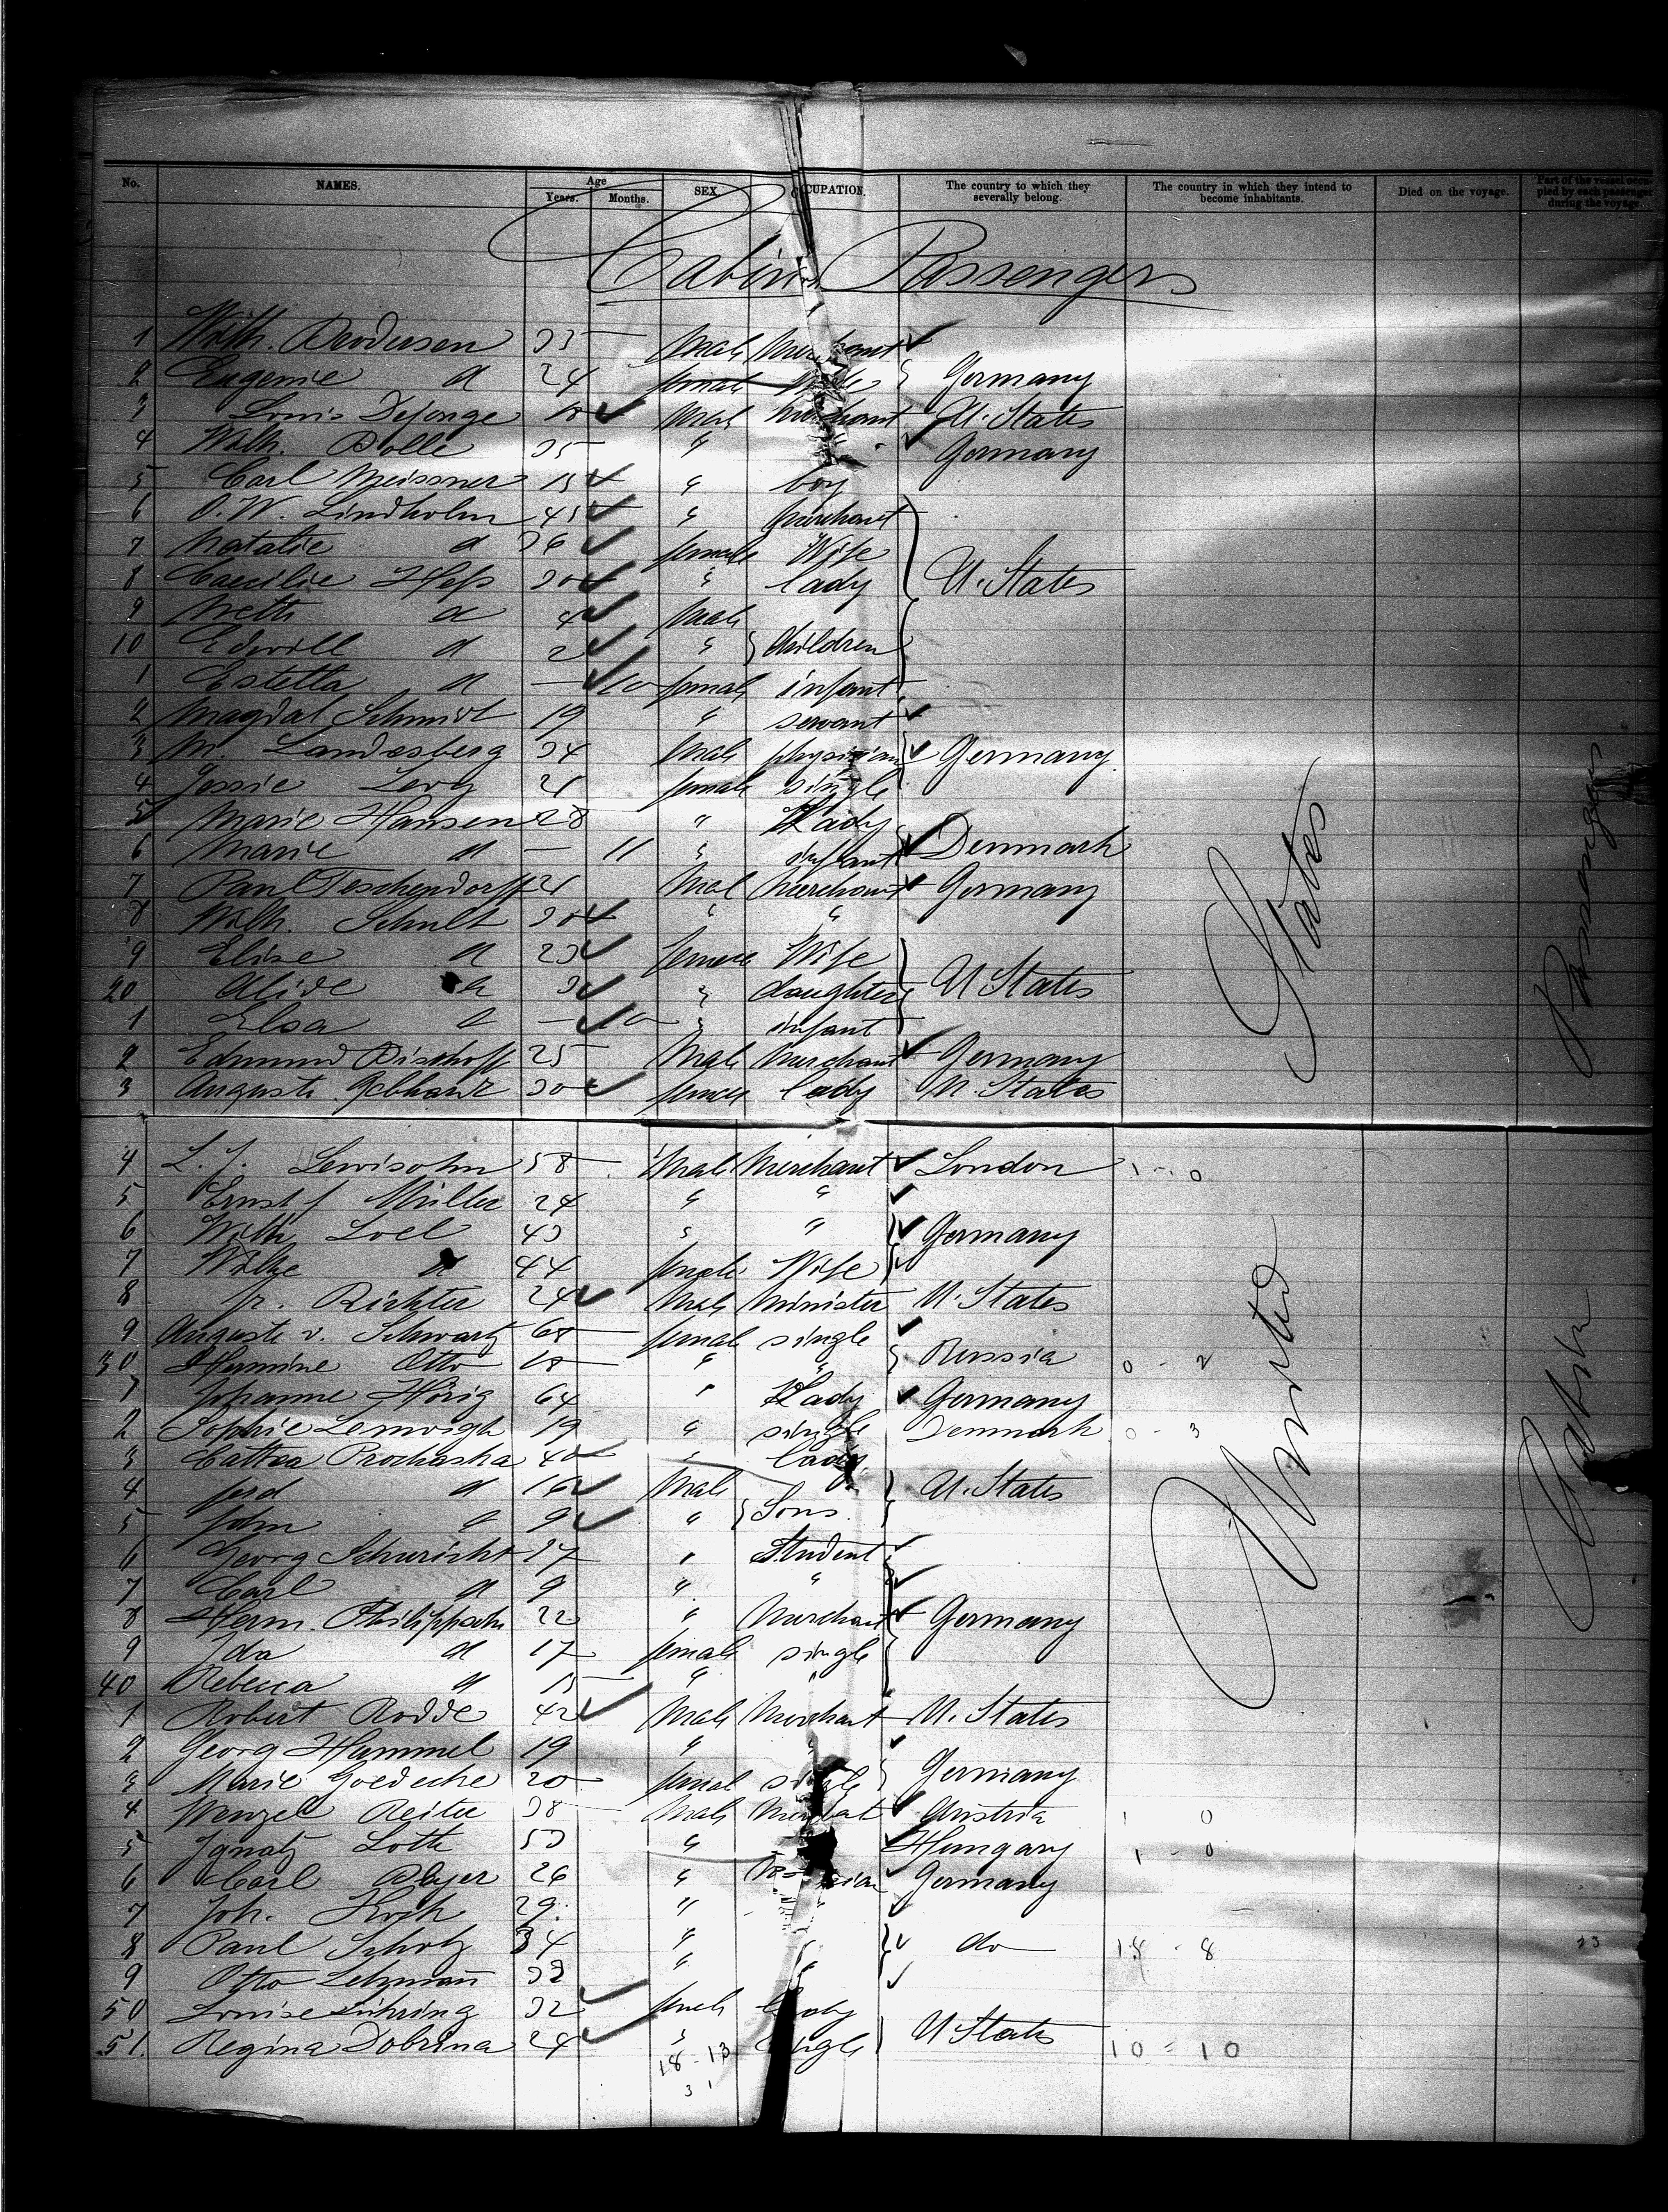 No. NAMES. Age Years. Months. SEX. OCCUPATION. The country to which they severally belong. The country in which they intend to become inhabitants. Died on the voyage. Part of the vessel occupied by each passenger during the voyage.
Cabin Passengers
1 Wilh. 33 — Male Merchant
2 Eugenie d 24 female Germany
3 Louis DeJonge Male Merchant U. States
4 Wilh. Bolle 35 " Germany
5 Carl Meissner 15 " boy
6 O. W. Lindholm 45 " Merchant
7 Natalie d 36 female Wife
8 Caecilie Hess 30 " lady U. States
9 d 4 Male
10 d 2 " Children
1 Estella d — 10 female infant
2 Magdal Schmidt 19 " servant
3 M. Landsberg 34 Male physician Germany
4 Jessie Levy 21 female single
5 Marie Hansen 28 " Lady
6 Marie d — 11 " infant Denmark
7 Paul Teschendorff 21 Male Merchant Germany
8 Wilh. Schult 30 " "
9 Elise d 23 female Wife
20 d 3 " daughter U States
1 Elsa d — 10 " infant
2 Edmund Bischoff 25 Male Merchant Germany
3 Auguste Gebhard 30 female lady U. States
4 L. J. Lewisohn 58 Male Merchant London 1 - 0
5 Ernst J Müller 24 " "
6 Wilh. Loel 43 " " Germany
7 d 44 female Wife
8 Fr. Richter 24 Male Minister U. States
9 Auguste v. Schwartz 68 female single
30 Hermine Otto " " Russia 0 - 2
1 Johanne Hörig 64 " Lady Germany
2 Sophie Lemvigh 19 " single Denmark 0 - 3
3 Prochaska 40 " lady
4 ferd d 16 Male U. States
5 John d 9 " Sons
6 Georg Schuricht 17 " Student
7 Carl d 9 " "
8 Herm. Philippsohn 22 " Merchant Germany
9 Ida d 17 female single
40 Rebecca d 15 " "
1 Robert Rodde 42 Male Merchant U. States
2 Georg Hammel 19 " "
3 Marie Goedecke 20 female single Germany
4 Wenzel Reiter 38 Male Austria 1 0
5 Ignatz Loth 53 " Hungary 1 - 0
6 Carl Meyer 26 " Germany
7 Joh. Koch 29 " "
8 Paul Scholz 34 " " do 18 - 8
9 Otto Lehmann 33 "
50 Louise Lühring 32 female lady
51. Regina Dobrina 24 " single U States 10 = 10
18 - 13
3 1
United States
Cabin Passengers
23